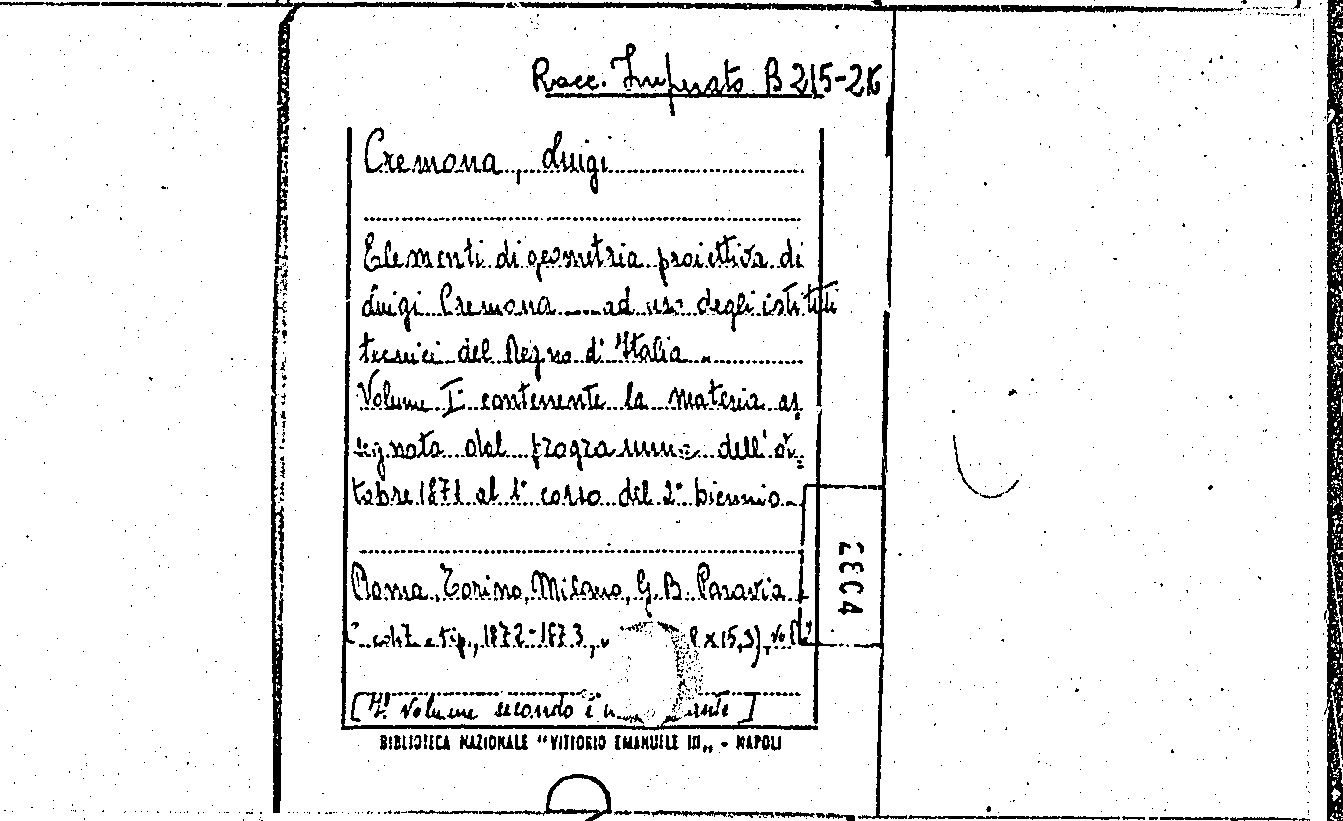 Racc. Imperato B 215-26
Cremona, Luigi
Elementi di geometria proiettiva di
Luigi Cremona ... ad uso degli istituti
tecnici del Regno d'Italia.
Volume I° contenente la materia as
segnata dal programma dell'ot=
tobre 1871 al 1° corso del 2° biennio.
Roma, Torino, Milano, G. B. Paravia
C. edit. e tip., 1872-1873, x 15,3), vol.
[Il volume secondo è ]
BIBLIOTECA NAZIONALE "VITTORIO EMANUELE III„ - NAPOLI